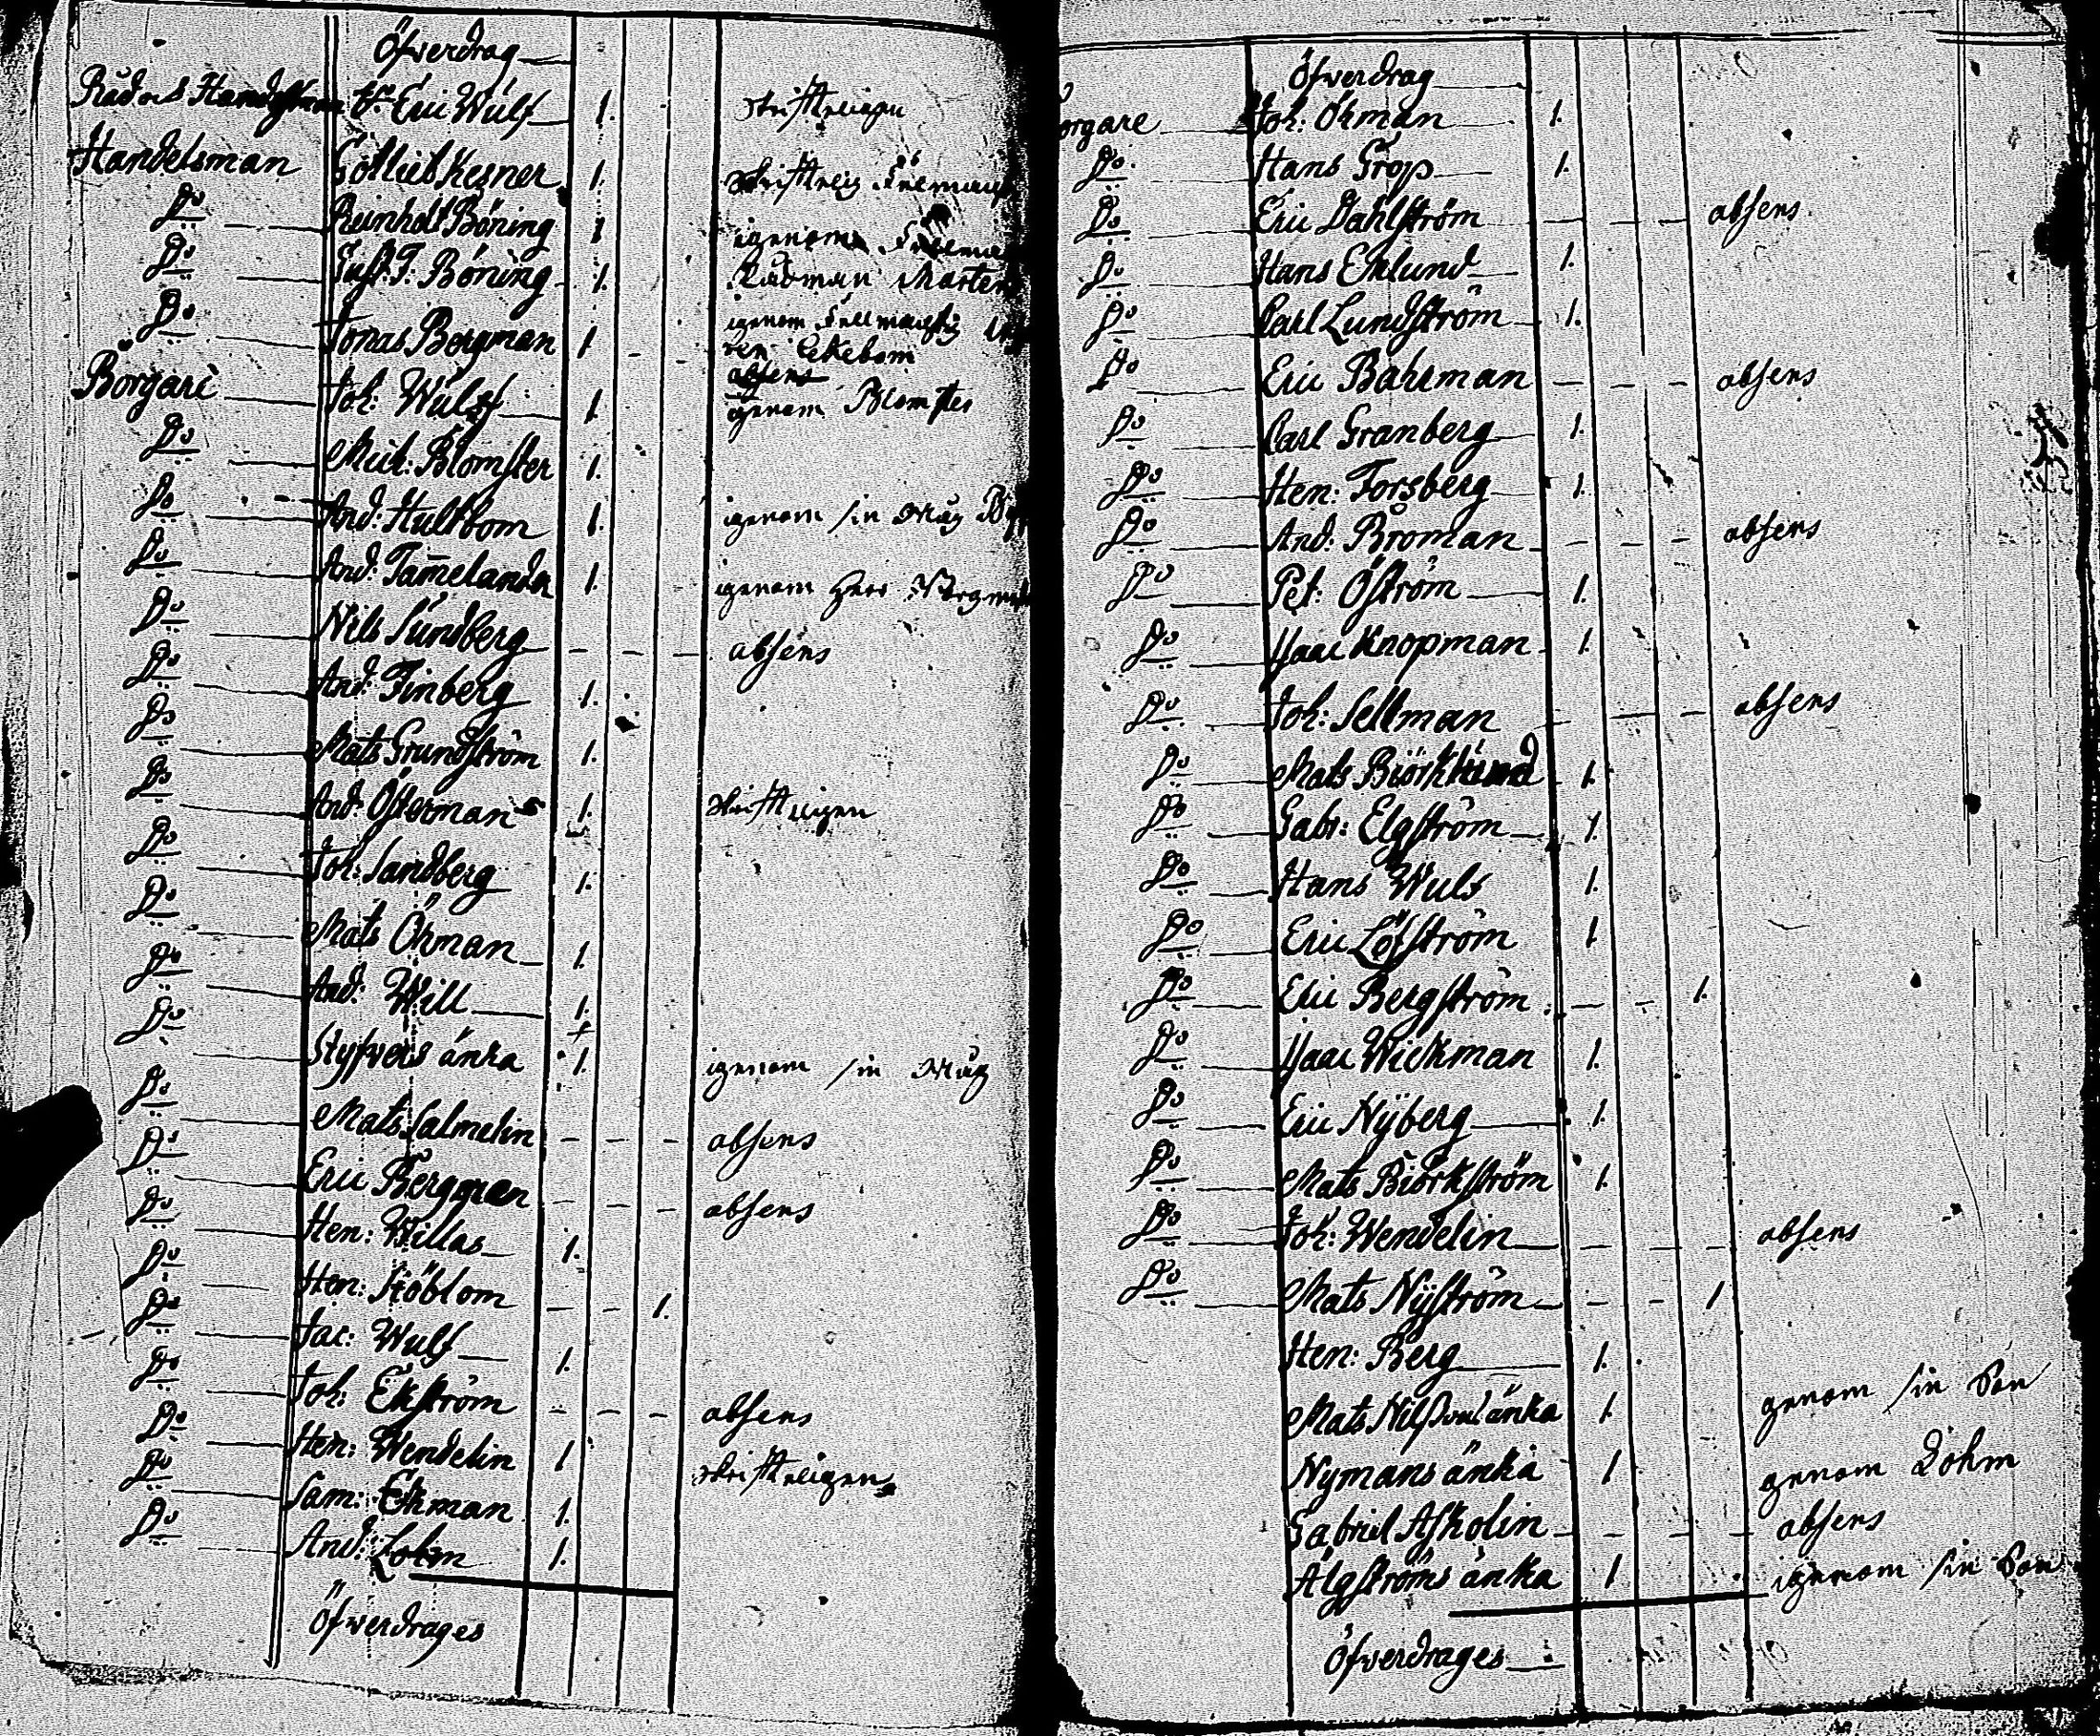 Öfverdrag
Rådm: Handelsman Hr Eric Wulf 1. skriftteligen
Handelsman Gottlieb Kesner 1. skriftelig
Do Reinholt Böning 1 igenom
Do Gust: F: Böning 1. Rådman Marten
Do Jonas Bergman 1 igenom fullmägtig
ren Ekebom
absens
Borgare Joh: Wulf 1. igenom Blomster
Do Mich: Blomster 1.
Do And: Hultbom 1. igenom sin Måg
Do And: Tam̄elander 1. igenom Herr Bergman
Do Nils Sundberg – – – absens
Do And: Finberg 1.
Do Mats Grundström 1.
Do And: Österman 1. skriftligen
Do Joh: Sandberg 1.
Do Mats Öhman 1.
Do And: Will 1.
Do Styfvers änka 1. igenom sin Måg
Do Mats Salmelin – – – absens
Do Eric Bergman – – – absens
Do Hen: Willas 1.
Do Hen: Höblom – – 1.
Do Jac: Wulf 1.
Do Joh: Ekström – – – absens
Do Hen: Wendelin 1 skriftteligen
Do Sam: Ekman 1.
Do And: Lohm 1.
Öfwerdrages
Öfverdrag
Borgare Joh: Öhman 1.
Do Hans Grop 1.
Do Eric Dahlström – – – absens
Do Hans Eklund 1.
Do Carl Lundström 1.
Do Eric Bahrman – – – absens
Do Carl Granberg 1.
Do Hen: Forsberg 1.
Do And: Broman – – – absens
Do Pet: Öström 1.
Do Isaac Knopman 1.
Do Joh: Sellman – – – absens
Do Mats Biörklund 1.
Do Gabr: Elgström 1.
Do Hans Wulf 1.
Do Eric Löfström 1.
Do Eric Bergström – – 1.
Do Isaac Wickman 1.
Do Eric Nÿberg 1.
Do Mats Biörkström 1.
Do Joh: Wendelin – – – absens
Do Mats Nÿström – – 1
Hen: Berg 1.
Mats Nilssons änka 1. genom sin Son
Nymans änka 1 genom Dohm
Gabriel Asholin – – – – absens
Älgströms änka 1 igenom sin Son
Öfverdrages